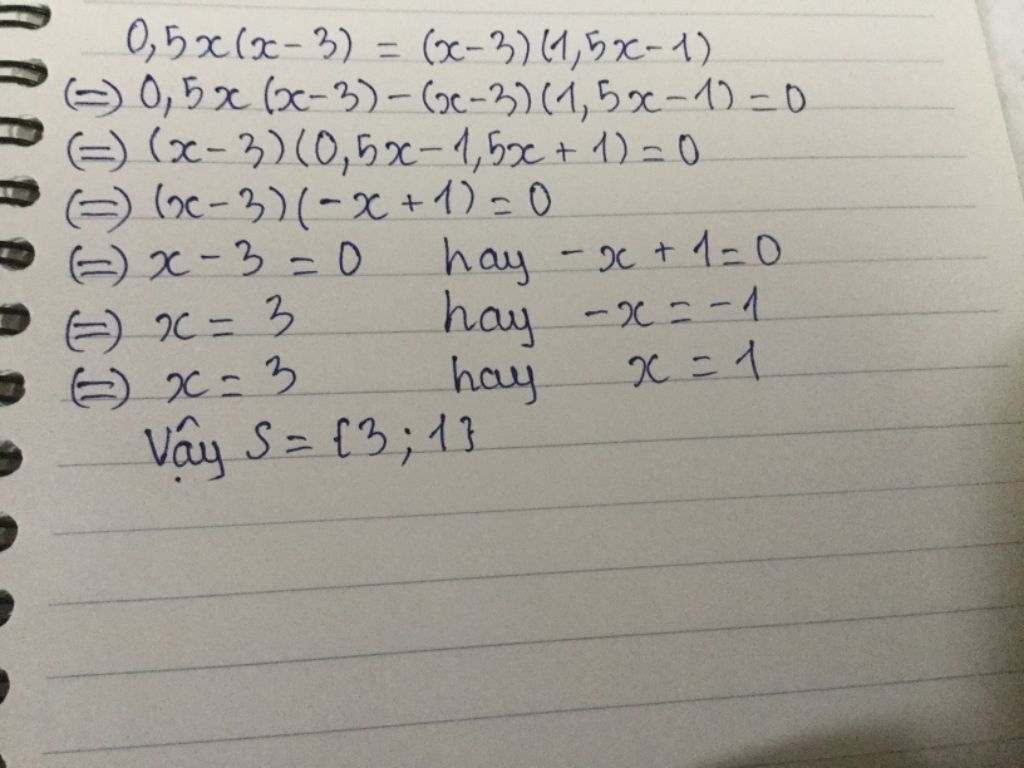 0,5x(x-3) = (x-3)(1,5x-1)
(=) 0,5x(x-3)-(x-3)(1,5x-1)=0
(=) (x-3)(0,5x-1,5x+1)=0
(=) (x-3)(-x+1)=0
(=) x-3=0 hay -x+1=0
(=) x=3 hay -x=-1
(=) x=3 hay x=1
Vậy S={3;1}